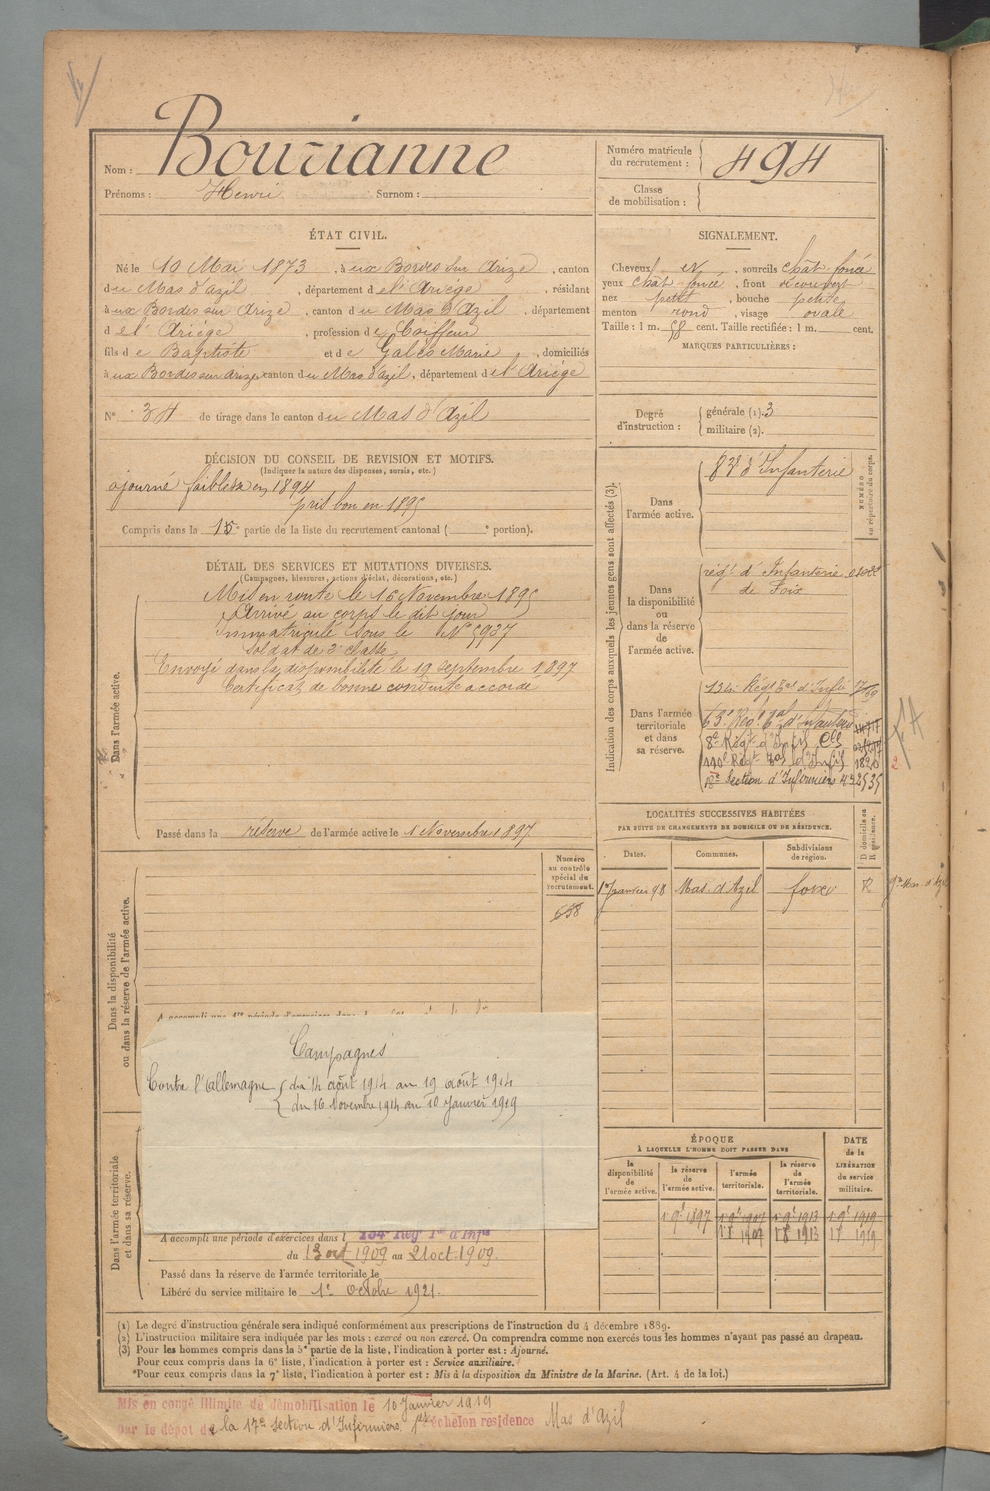 Nom : Bourianne
Prénoms : Henri Surnom :
Numéro matricule du recrutement : 494
Classe de mobilisation :
ÉTAT CIVIL.
Né le 10 Mai 1873, à ux Bordes sur Arize, canton
du Mas d'azil, département de l'Ariège, résidant
à ux Bordes sur Arize, canton du Mas d'Azil, département
de l'Ariège, profession de Coiffeur
fils de Baptiste et de Galès Marie, domiciliés
à ux Bordes sur Arize, canton du Mas d'azil, département de l'Ariège
N° 34 de tirage dans le canton du Mas d'Azil
SIGNALEMENT.
Cheveux et, sourcils chât foncé
yeux chât foncé, front découvert
nez petit, bouche petite
menton rond, visage ovale
Taille : 1 m. 58 cent. Taille rectifiée : 1 m. cent.
MARQUES PARTICULIÈRES :
Degré d'instruction : générale (1). 3
militaire (2).
DÉCISION DU CONSEIL DE REVISION ET MOTIFS.
(Indiquer la nature des dispenses, sursis, etc.)
ajourné faiblesse en 1894
pris bon en 1895
Compris dans la 1e partie de la liste du recrutement cantonal ( e portion).
DÉTAIL DES SERVICES ET MUTATIONS DIVERSES.
(Campagnes, blessures, actions d'éclat, décorations, etc.)
Dans l'armée active.
Mis en route le 16 Novembre 1895
Arrivé au corps le dit jour
Immatriculé sous le N° 5937
Soldat de 2e classe
Envoyé dans la disponibilité le 19 Septembre 1897
Certificat de bonne conduite accordé
Passé dans la réserve de l'armée active le 1 Novembre 1897
Indication des corps auxquels les jeunes gens sont affectés (3).
NUMÉRO au répertoire du corps.
Dans l'armée active.
83e d'Infanterie
Dans la disponibilité ou dans la réserve de l'armée active.
régt d'Infanterie
de Foix
Dans l'armée territoriale et dans sa réserve.
134e Régt Tal d'Infie
63e Régt Tal d'Infanterie
8e Régt d'Infie Cle
110e Régt Tal d'Infie 1820
Section d'Infirmiers 432535
LOCALITÉS SUCCESSIVES HABITÉES
PAR SUITE DE CHANGEMENTS DE DOMICILE OU DE RÉSIDENCE.
Dates. Communes. Subdivisions de région. D domicile ou R résidence.
1er janvier 98 Mas d'Azil foix R
Dans la disponibilité ou dans la réserve de l'armée active.
Numéro au contrôle spécial du recrutement.
638
Campagnes
Contre l'Allemagne { du 14 août 1914 au 19 août 1914
du 16 Novembre 1914 au 10 Janvier 1919
Dans l'armée territoriale et dans sa réserve.
A accompli une période d'exercices dans l 134e Regt Tal d'Infie
du 13 oct 1909 au 21 oct. 1909.
Passé dans la réserve de l'armée territoriale le
Libéré du service militaire le 1er octobre 1921.
ÉPOQUE
À LAQUELLE L'HOMME DOIT PASSER DANS
la disponibilité de l'armée active. la réserve de l'armée active. l'armée territoriale. la réserve de l'armée territoriale.
DATE de la LIBÉRATION du service militaire.
1 9e 1897 1 9e 1907 1 9e 1913 1 9e 1919
1 8 1907 1 8 1913 1 8 1919
(1) Le degré d'instruction générale sera indiqué conformément aux prescriptions de l'instruction du 4 décembre 1889.
(2) L'instruction militaire sera indiquée par les mots : exercé ou non exercé. On comprendra comme non exercés tous les hommes n'ayant pas passé au drapeau.
(3) Pour les hommes compris dans la 5e partie de la liste, l'indication à porter est : Ajourné.
Pour ceux compris dans la 6e liste, l'indication à porter est : Service auxiliaire.
Pour ceux compris dans la 7e liste, l'indication à porter est : Mis à la disposition du Ministre de la Marine. (Art. 4 de la loi.)
Mis en congé illimité de démobilisation le 10 Janvier 1919
par le dépôt de la 17e Section d'Infirmiers 1er échelon résidence Mas d'Azil